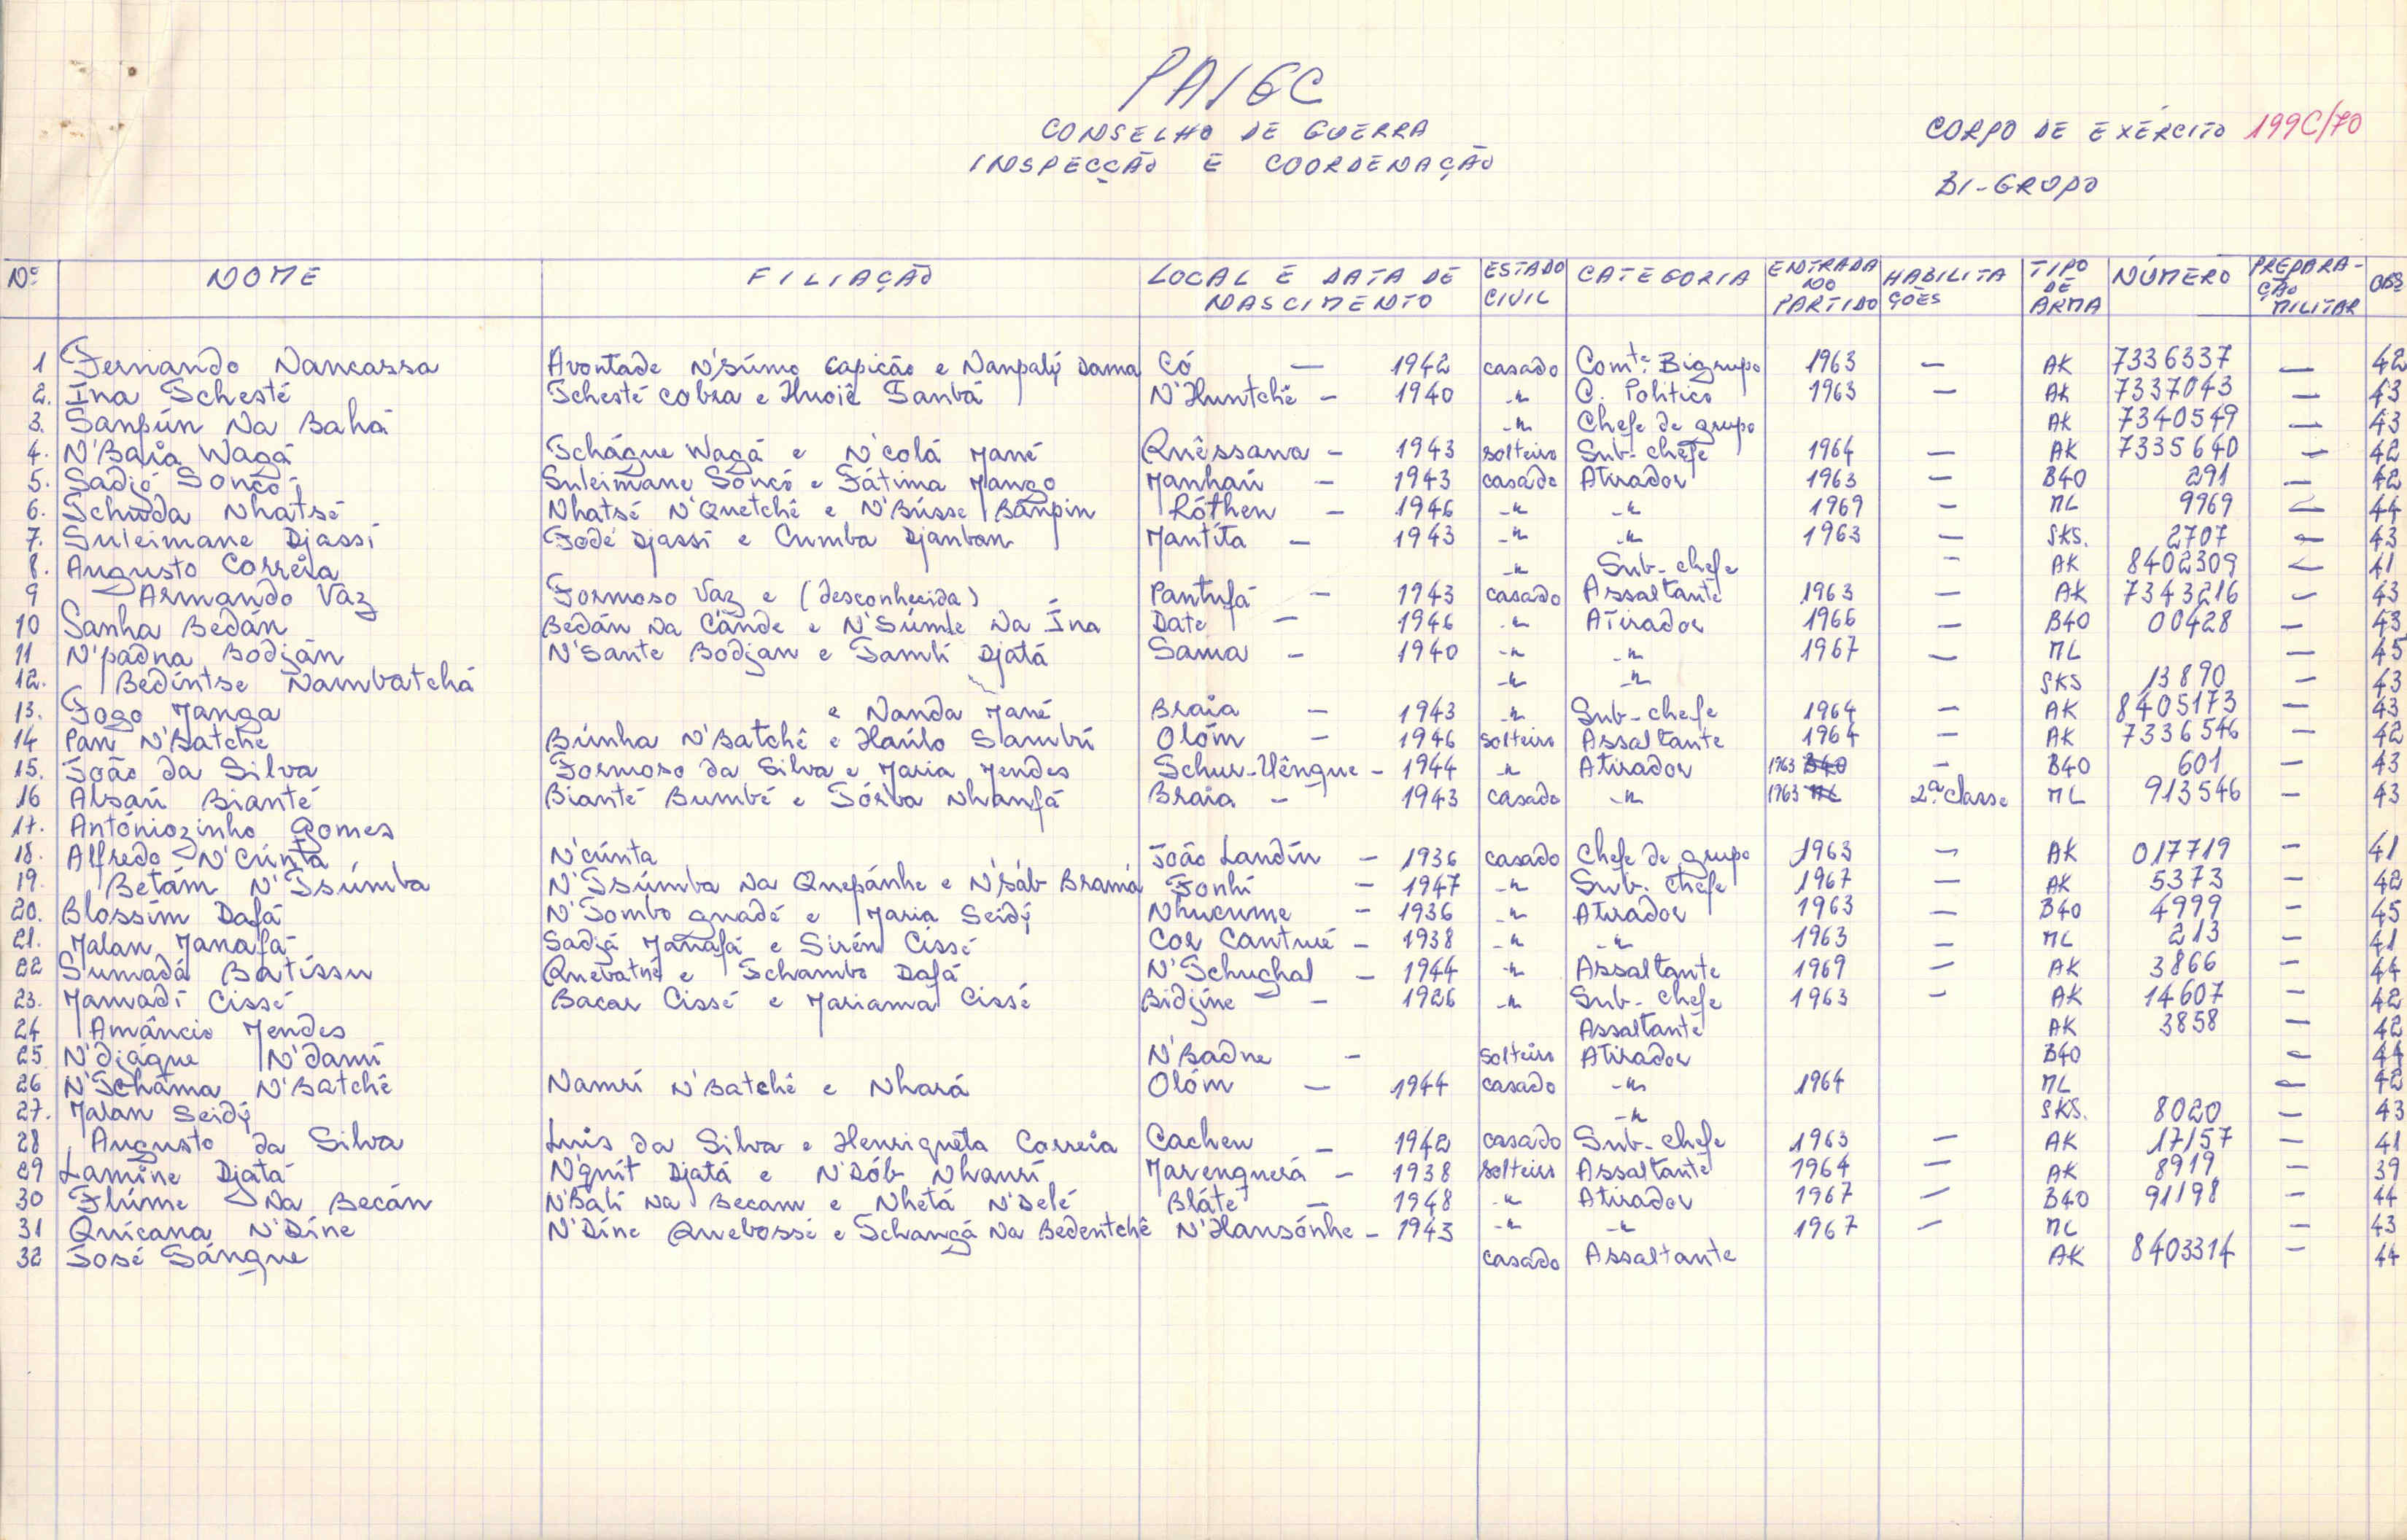 PAIGC
CONSELHO DE GUERRA
INSPECÇÃO E COORDENAÇÃO
CORPO DE EXÉRCITO 199C/70
BI-GRUPO
Nº NOME FILIAÇÃO LOCAL E DATA DE NASCIMENTO ESTADO CIVIL CATEGORIA ENTRADA NO PARTIDO HABILITAÇÕES TIPO DE ARMA NÚMERO PREPARAÇÃO MILITAR OBS
1 Fernando Nancassa Avontade N'súmo Capição e Nanpalý Dama Có — 1942 casado Comte. Bigrupo 1963 — AK 7336337 — 42
2. Ina Tchesté Tchesté cobra e Huoiê Sanbá N'Huntchê — 1940 -"- C. Politico 1963 — AK 7337043 — 43
3. Sanpún Na Bahá -"- Chefe de grupo AK 7340549 — 43
4. N'Baia Wagá Tchágue Wagá e N'colá Mané Quêssana — 1943 solteiro Sub-chefe 1964 — AK 7335640 — 42
5. Sadjó Soncó Suleimane Soncó e Fátima Mango Manhaú — 1943 casado Atirador 1963 — B40 291 — 42
6. Tchuda Nhatsé Nhatsé N'Quetchê e N'Bússe Banpin Róthen — 1946 -"- -"- 1969 — ML 9969 — 44
7. Suleimane Djassi Fodé Djassi e Cumba Djanban Mantíta — 1943 -"- -"- 1963 — SKS. 2707 — 43
8. Augusto Correia -"- Sub-chefe — AK 8402309 — 41
9 Armando Vaz Formoso Vaz e (desconhecida) Pantufá — 1943 casado Assaltante 1963 — AK 7343216 — 43
10 Sanha Bedán Bedán Na Cánde e N'Súmle Na Ína Date — 1946 -"- Atirador 1966 — B40 00428 — 43
11 N'padna Bodján N'Sante Bodjan e Tambi Djatá Sama — 1940 -"- -"- 1967 — ML — 45
12. Bedíntse Nambatchá -"- -"- SKS 13890 — 43
13. Fogo Manga e Nanda Mané Braia — 1943 -"- Sub-chefe 1964 — AK 8405173 — 43
14 Pan N'Batche Búnha N'Batchê e Haúlo Sambú Olóm — 1946 solteiro Assaltante 1964 — AK 7336546 — 42
15. João da Silva Formoso da Silva e Maria Mendes Tchur-Uêngue — 1944 -"- Atirador 1963 B40 — B40 601 — 43
16 Alsaú Bianté Bianté Bumbé e Tórba Nhanfá Braia — 1943 casado -"- 1963 ML 2ª classe ML 913546 — 43
17. Antóniozinho Gomes
18. Alfredo N'Cúnta N'cúnta João Landín — 1936 casado Chefe de grupo 1963 — AK 017719 — 41
19. Betám N'Tsúmba N'Tsúmba Na Quepánhe e N'sáb Bramá Fonhi — 1947 -"- Sub. chefe 1967 — AK 5373 — 42
20. Blossím Dafá N'Tombo gnadé e Maria Seidý Nhucume — 1936 -"- Atirador 1963 — B40 4999 — 45
21. Malan Manafá Sadjá Manafá e Sirén Cissé Cor Cantué — 1938 -"- -"- 1963 — ML 213 — 41
22 Sumadá Batíssu Quebatné e Tchambo Dafá N'Tchughal — 1944 -"- Assaltante 1969 — AK 3866 — 44
23. Mamadi Cissé Bacar Cissé e Mariama Cissé Bidjine — 1926 -"- Sub-chefe 1963 — AK 14607 — 42
24 Amâncio Mendes Assaltante AK 3858 — 42
25 N'djágue N'dami N'Badne — solteiro Atirador B40 — 44
26 N'Tcháma N'Batchê Namsí N'Batchê e Nhará Olóm — 1944 casado -"- 1964 ML — 42
27. Malan Seidý -"- SKS. 8020 — 43
28 Augusto da Silva Luis da Silva e Henriqueta Correia Cacheu — 1942 casado Sub-chefe 1963 — AK 17157 — 41
29 Lamine Djatá N'quít Djatá e N'Dób Nhansí Marenguerá — 1938 solteiro Assaltante 1964 — AK 8919 — 39
30 Flúme Na Becán N'Bati Na Becam e Nhetá N'Delé Bláte — 1948 -"- Atirador 1967 — B40 91198 — 44
31 Quicana N'Díne N'Díne Quebossé e Tchangá Na Bedentchê N'Hansónhe — 1943 -"- -"- 1967 — ML — 43
32 José Sángue casado Assaltante AK 8403314 — 44